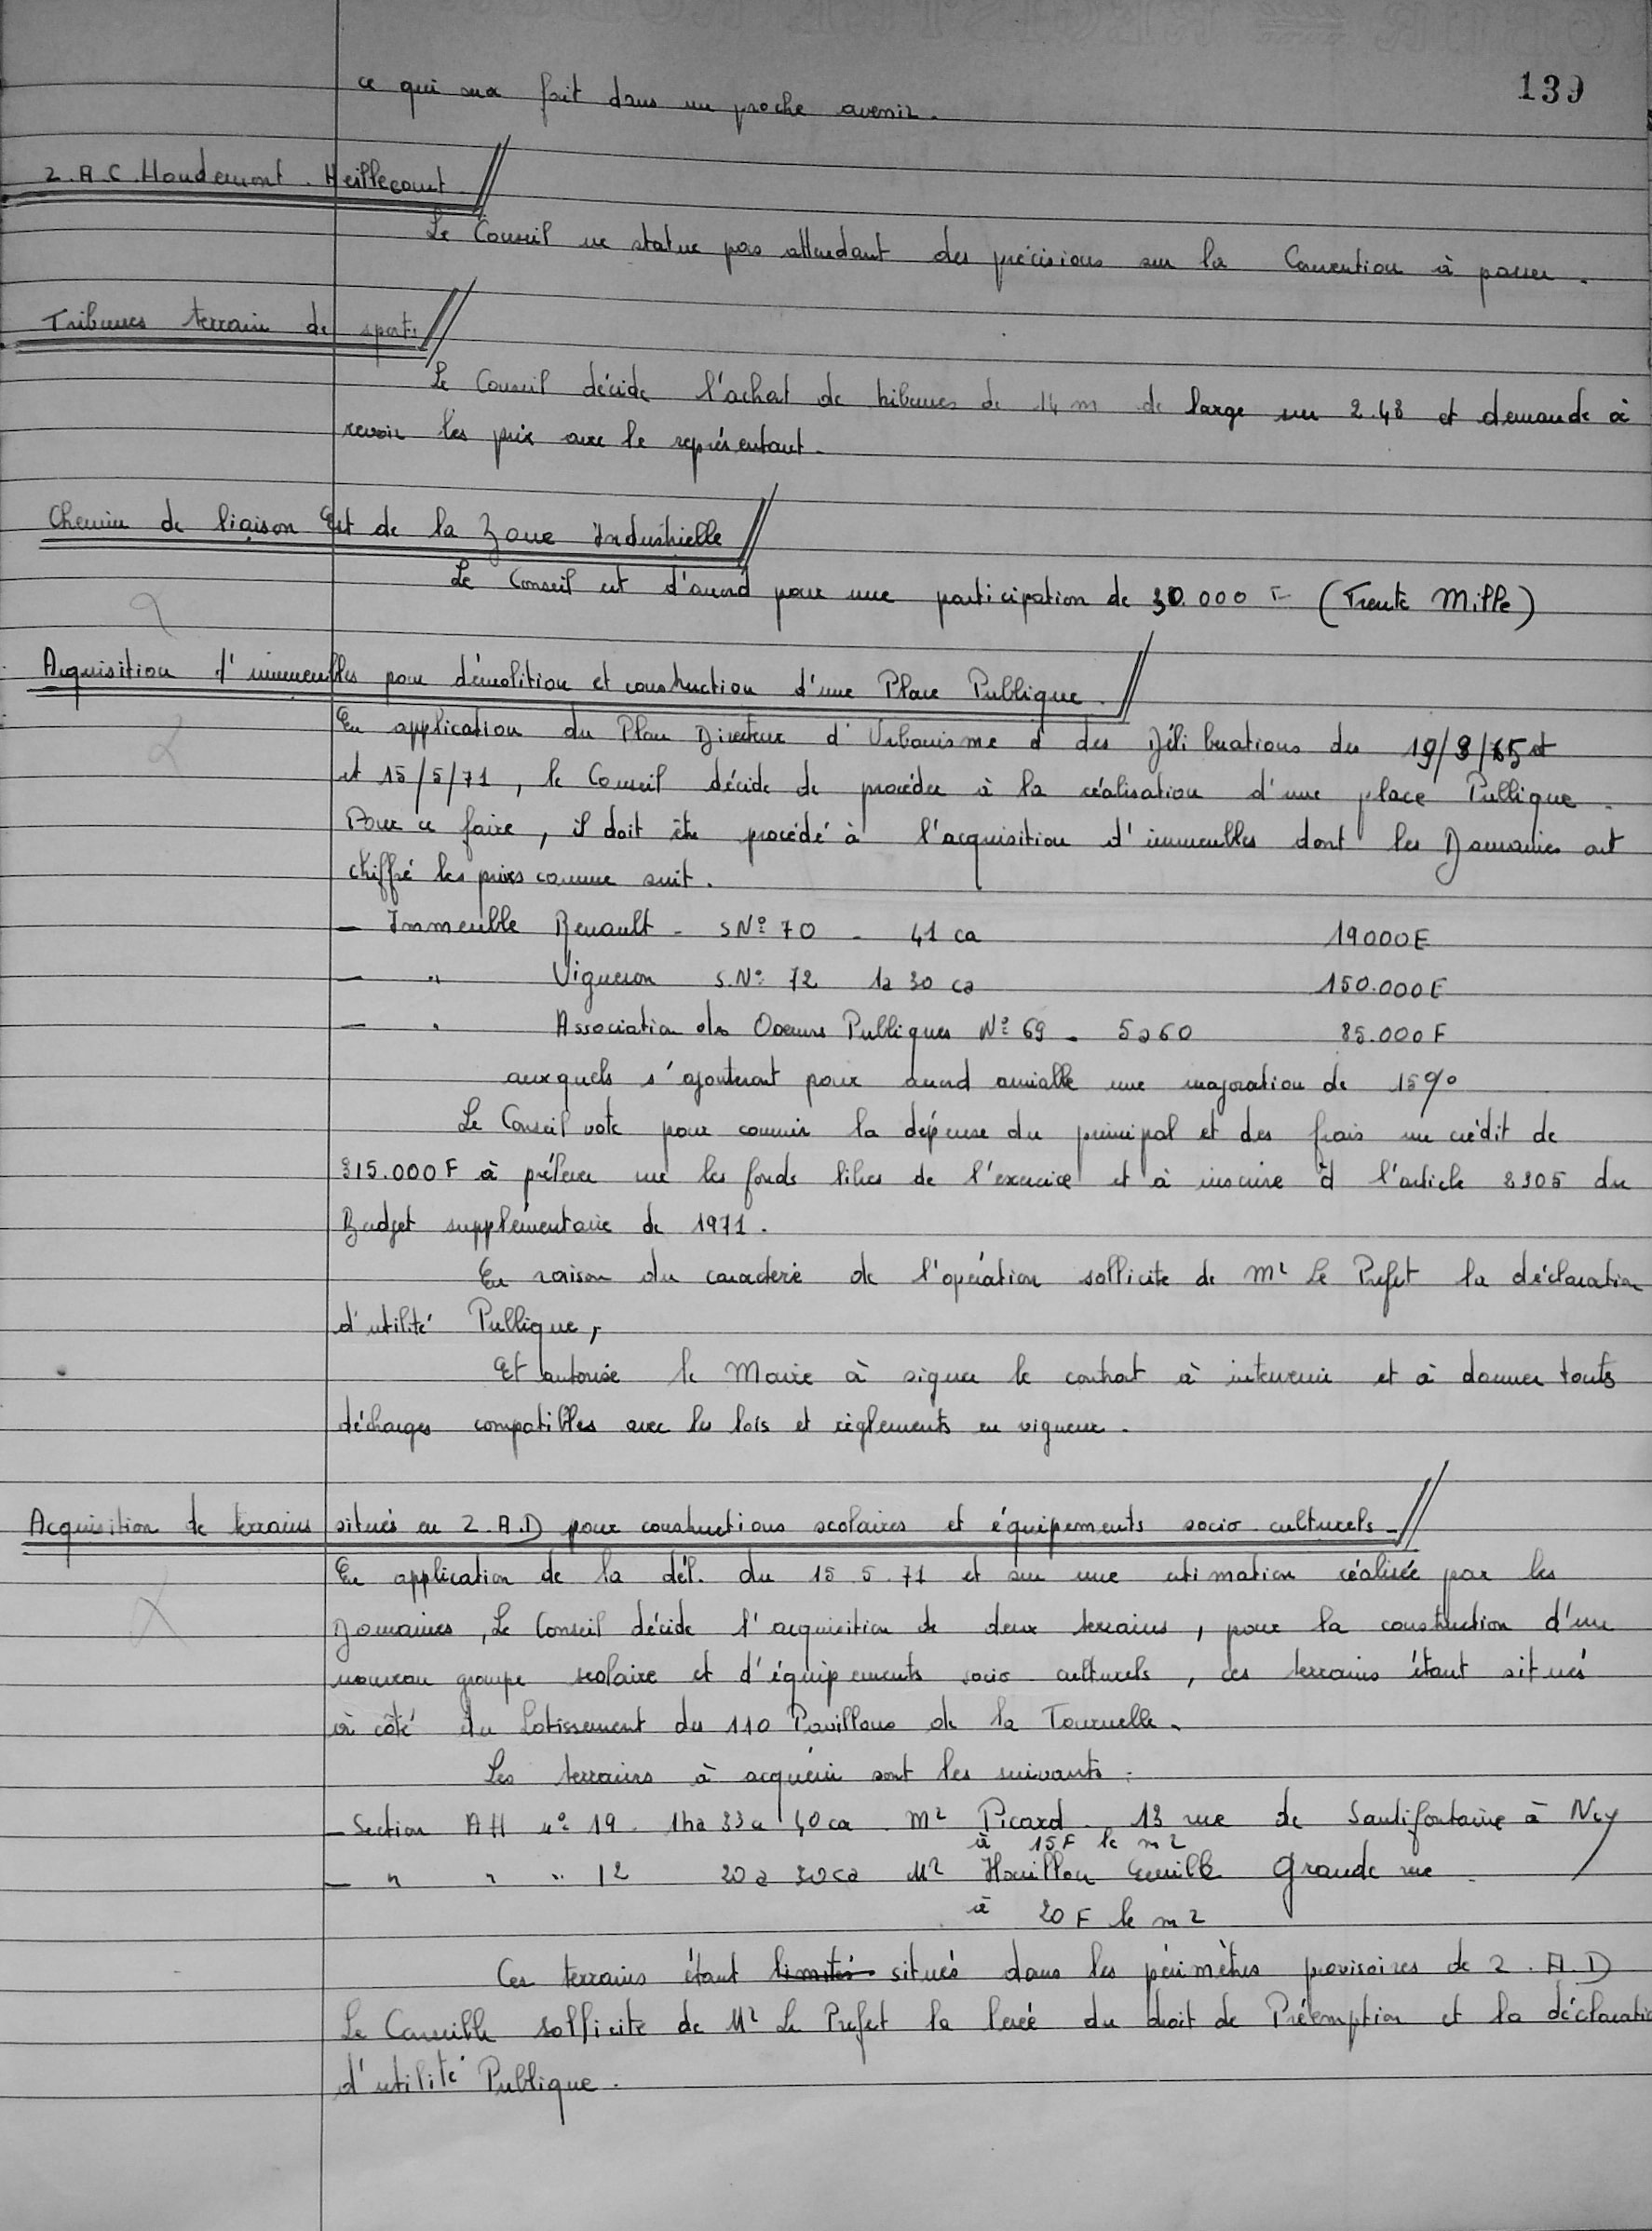 139
ce qui sera fait dans un proche avenir.
Z.A.C. Houdemont. Heillecourt.
Le Conseil ne statue pas attendant des précisions sur la Convention à passer.
Tribunes terrain de sports
Le Conseil décide l'achat de tribunes de 14 m de large sur 2.48 et demande à
revoir les prix avec le représentant.
Chemin de liaison Est de la Zone Industrielle
Le Conseil est d'accord pour une participation de 30.000 F (Trente Mille)
Acquisition d'immeubles pour démolition et construction d'une Place Publique.
En application du Plan Directeur d'Urbanisme et des Délibérations des 19/9/65 et
et 15/5/71, le Conseil décide de procéder à la réalisation d'une place Publique.
Pour ce faire, il doit être procédé à l'acquisition d'immeubles dont les Domaines ont
chiffré les prix comme suit.
- Immeuble Renault - S N° 70 - 41 ca 19000 F
- " Vigneron S.N° 72 1a 30 ca 150.000 F
- " Association des Oeuvres Publiques N° 69 - 5a60 85.000 F
auxquels s'ajouteront pour accord amiable une majoration de 15%
Le Conseil vote pour couvrir la dépense du principal et des frais un crédit de
315.000 F à prélever sur les fonds libres de l'exercice et à inscrire à l'article 2305 du
Budget supplémentaire de 1971.
En raison du caractère de l'opération sollicite de Mr Le Prefet la déclaration
d'utilité Publique,
Et autorise le Maire à signer le contrat à intervenir et à donner touts
décharges compatibles avec les lois et règlements en vigueur.
Acquisition de terrains situés en Z.A.D pour constructions scolaires et équipements socio-culturels -
En application de la dél. du 15.5.71 et sur une estimation réalisée par les
Domaines, Le Conseil décide l'acquisition de deux terrains, pour la construction d'un
nouveau groupe scolaire et d'équipements socio-culturels, ces terrains étant situés
à côté du Lotissement des 110 Pavillons de la Tournelle.
Les terrains à acquérir sont les suivants :
- Section AH n° 19. 1ha 33a 40ca. Mr Picard. 13 rue de Saurifontaine à Ncy
à 15F le m2
- " " " 12 20a 30ca Mr Houillon Emile Grande rue.
à 20 F le m2
Ces terrains étant limités situés dans les périmètres provisoires de Z.A.D
Le Conseille sollicite de Mr Le Prefet la levée du droit de Préemption et la déclaratio
d'utilité Publique.